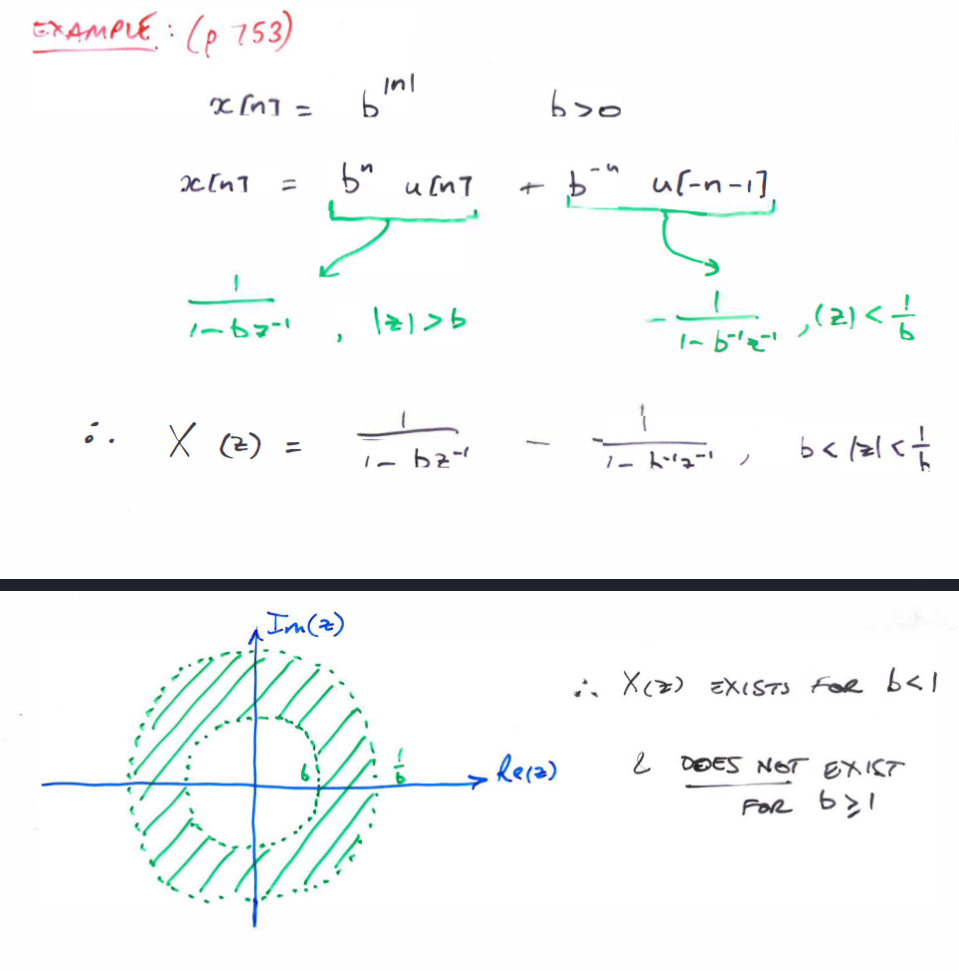 EXAMPLE : (p 753)
x[n] = b^|n| b>0
x[n] = b^n u[n] + b^-n u[-n-1]
1/(1-bz^-1) , |z|>b -1/(1-b^-1z^-1) , |z|<1/b
∴ X(z) = 1/(1-bz^-1) - 1/(1-b^-1z^-1) , b<|z|<1/b
Im(z)
∴ X(z) EXISTS FOR b<1
b 1/b Re(z)
& DOES NOT EXIST
FOR b≥1